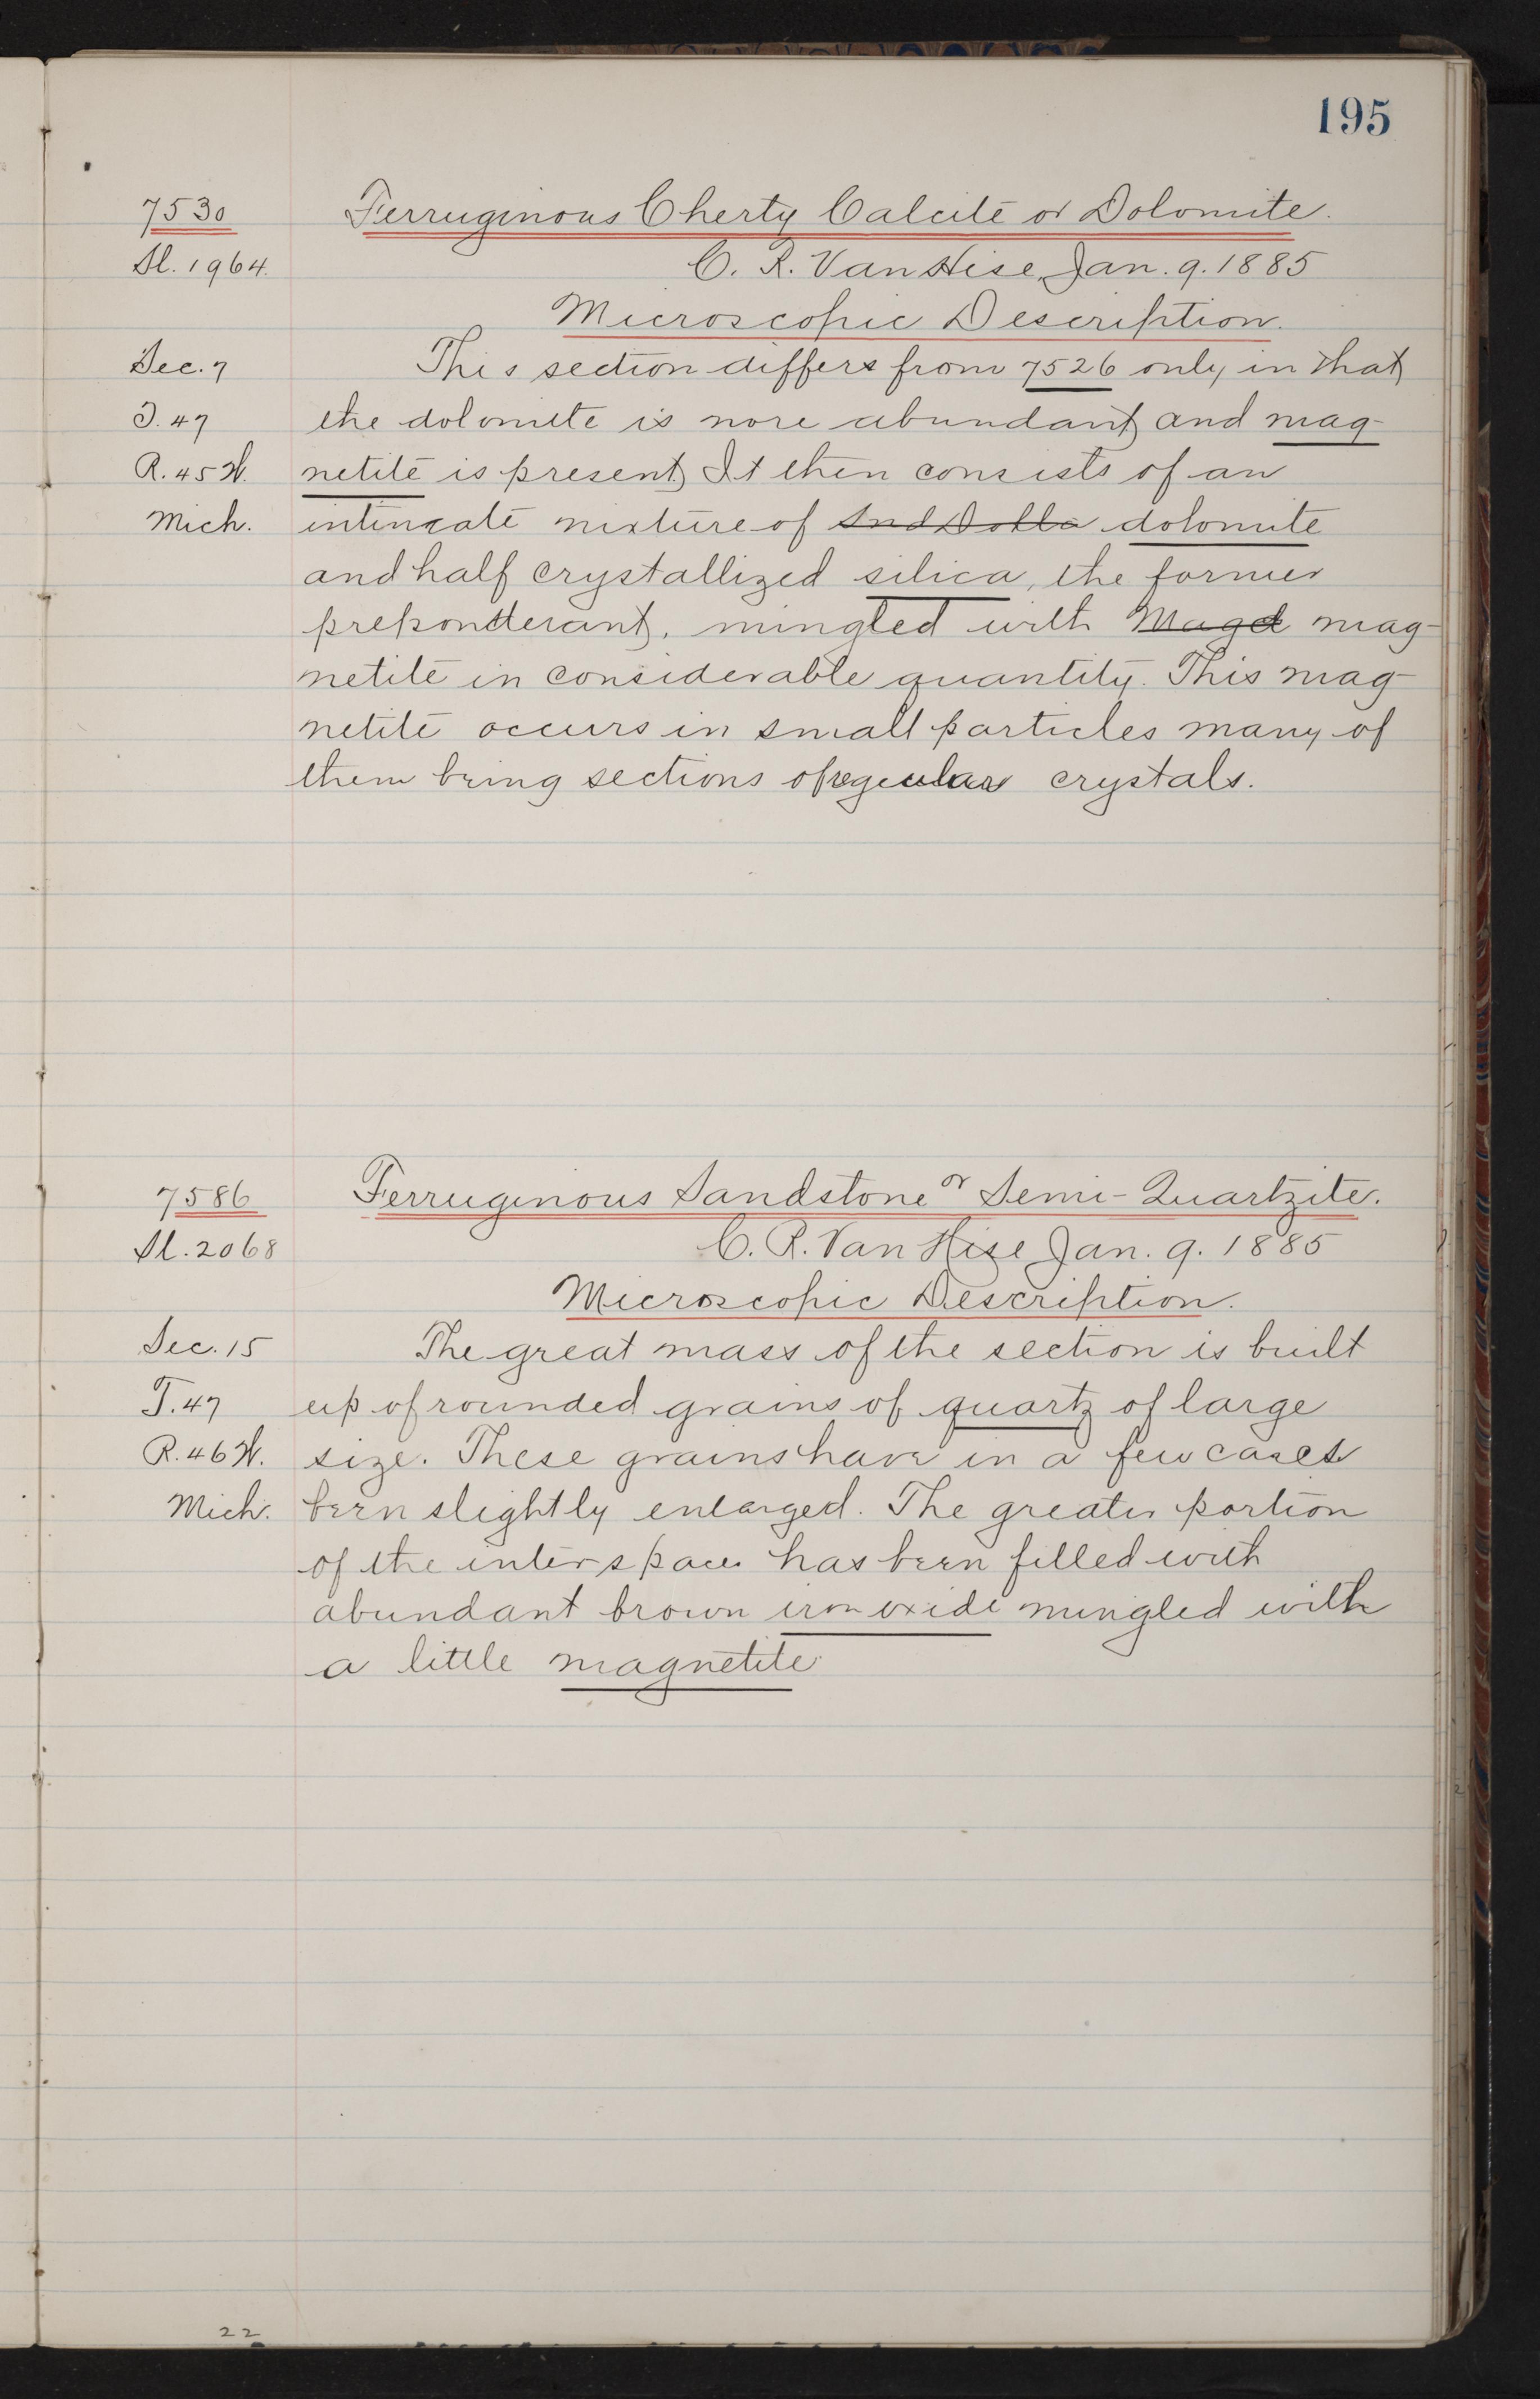 195
7530 Ferruginous Cherty Calcite or Dolomite.
Sl. 1964. C. R. Van Hise, Jan. 9. 1885
Microscopic Description.
Sec. 7 This section differs from 7526 only in that
T. 47 the dolomite is more abundant and mag-
R. 45 W. netite is present, It then consists of an
Mich. intincate mixture of dolomite
and half crystallized silica, the former
preponderant, mingled with Maget mag-
netite in considerable quantity. This mag-
netite occurs in small particles many of
them being sections of regular crystals.
7586 Ferruginous Sandstone or Semi-Quartzite.
Sl. 2068 C. R. Van Hise Jan. 9. 1885
Microscopic Description.
Sec. 15 The great mass of the section is built
T. 47 up of rounded grains of quartz of large
R. 46 W. size. These grains have in a few cases
Mich. been slightly enlarged. The greater portion
of the interspace has been filled with
abundant brown iron oxide mingled with
a little magnetite
22